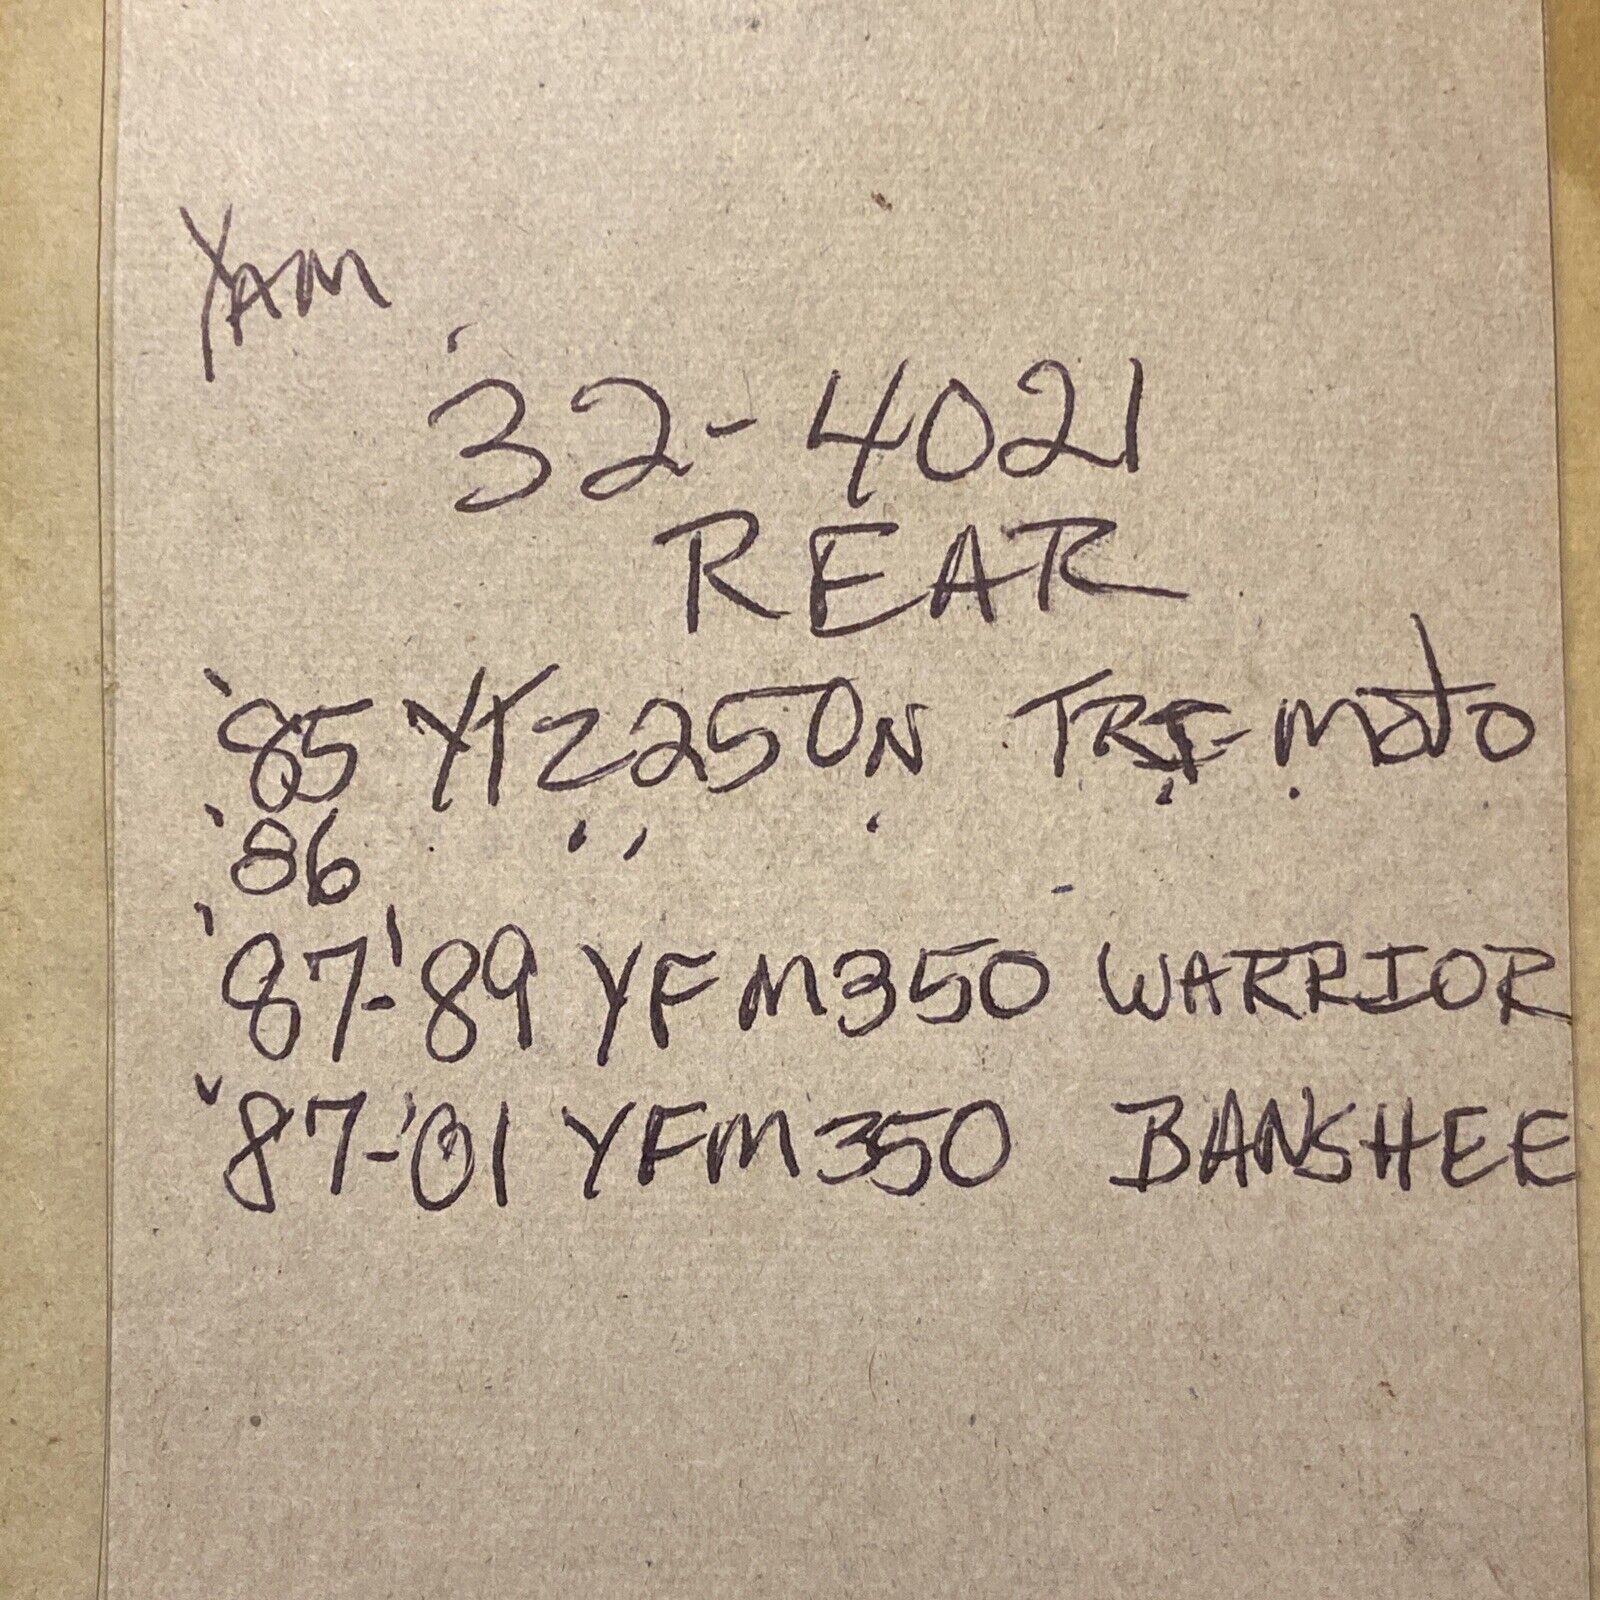 YAM
32-4021
REAR
'85 YTZ250N TRI-MOTO
'86 " "
'87-'89 YFM350 WARRIOR
'87-'01 YFM350 BANSHEE